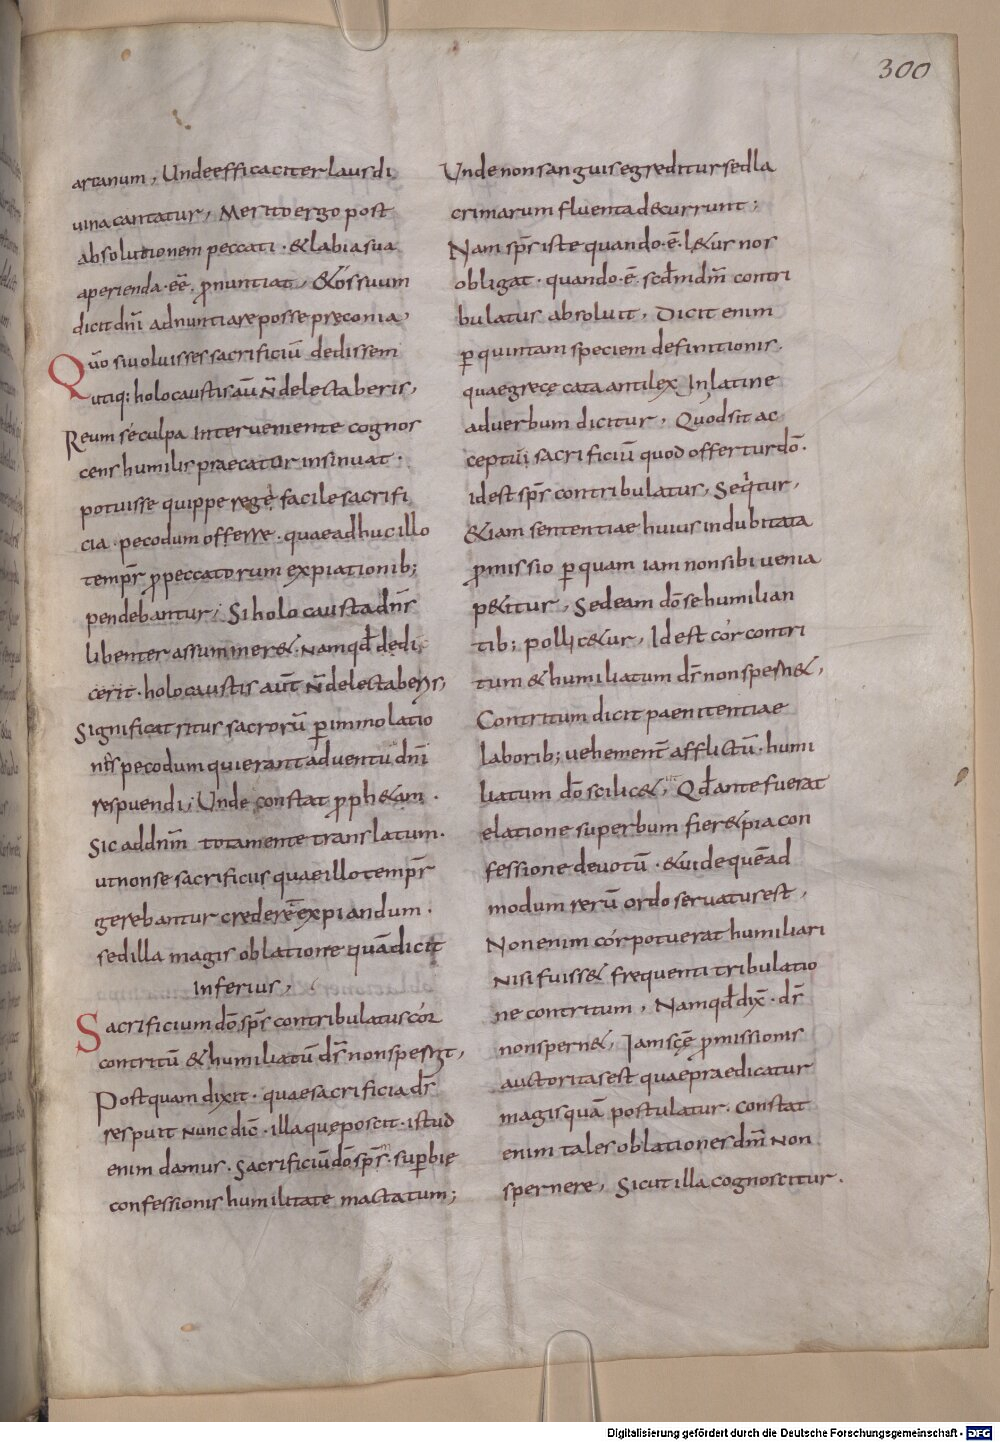 300
arcanum, Unde efficaciter laus di
uina cantatur, Merito ergo post
absolutionem peccati · & labia sua
aperienda · eē · ꝓnuntiat, & os suum
dicit dn̄i adnuntiare posse preconia,
Qūo si uoluisses sacrificiū dedissem
utiq; holocaustis aū n̄ delectaberis,
Reum se culpa interueniente cognos
cens humilis praecator insinuat ·
potuisse quippe rege facile sacrifi
cia · pecodum offerre · quae adhuc illo
temp̄r ꝓ peccatorum expiationib;
pendebantur; Si holocausta dn̄s
libenter assummer& · Namqd̄ dedi
cerit · holocaustis aūt n̄ delectaberis,
Significat ritus sacrorū ꝑ immolatio
nēs pecodum qui erant aduentu dn̄i
respuendi; Unde constat ꝓph&am ·
Sic ad dn̄m tota mente translatum ·
ut non se sacrificiis quae illo temp̄r
gerebantur crederē expiandum ·
sed illa magis oblatione quā dicit
inferius,
Sacrificium dō sp̄s contribulatus cor
contritū & humiliatū ds̄ non spern&,
Postquam dixit · quae sacrificia ds̄
respuit nunc dic̄ · illa que poscit · istud
enim damus · Sacrificiū dō sp̄s · suꝑbię
confessionis humilitate mactatum;
Unde non sanguis egreditur sed la
crimarum fluenta decurrunt;
Nam sp̄s iste quando · ē · l&us nos
obligat · quando · ē · scd̄m dm̄ contri
bulatus absoluit, Dicit enim
ꝑ quintam speciem definitionis,
quae grece cata antilex In latine
aduerbum dicitur, Quod sit ac
ceptūi sacrificiū quod offertur dō ·
id est sp̄s contribulatus, Seq̄tur,
&iam sententiae huius indubitata
ꝓmissio ꝑ quam iam non sibi uenia
p&itur, Sed eam dō se humilian
tib; pollic&ur, Id est cor contri
tum & humiliatum ds̄ non spern&,
Contritum dicit paenitentiae
laborib; uehement̄ afflictū · humi
liatum dō scilic&, ut Qd̄ ante fuerat
elatione superbum fier& pia con
fessione deuotū · & uide quēad
modum rerū ordo seruatus est,
Non enim cor potuerat humiliari
nisi fuiss& frequenti tribulatio
ne contritum, Namqd̄ dix̄ · ds̄
non spern&, Iam sc̄e ꝓmissionis
auctoritas est quae praedicatur
magis quā postulatur · constat
enim tales oblationes dn̄m non
spernere, Sicut illa cognoscitur ·
Digitalisierung gefördert durch die Deutsche Forschungsgemeinschaft - DFG